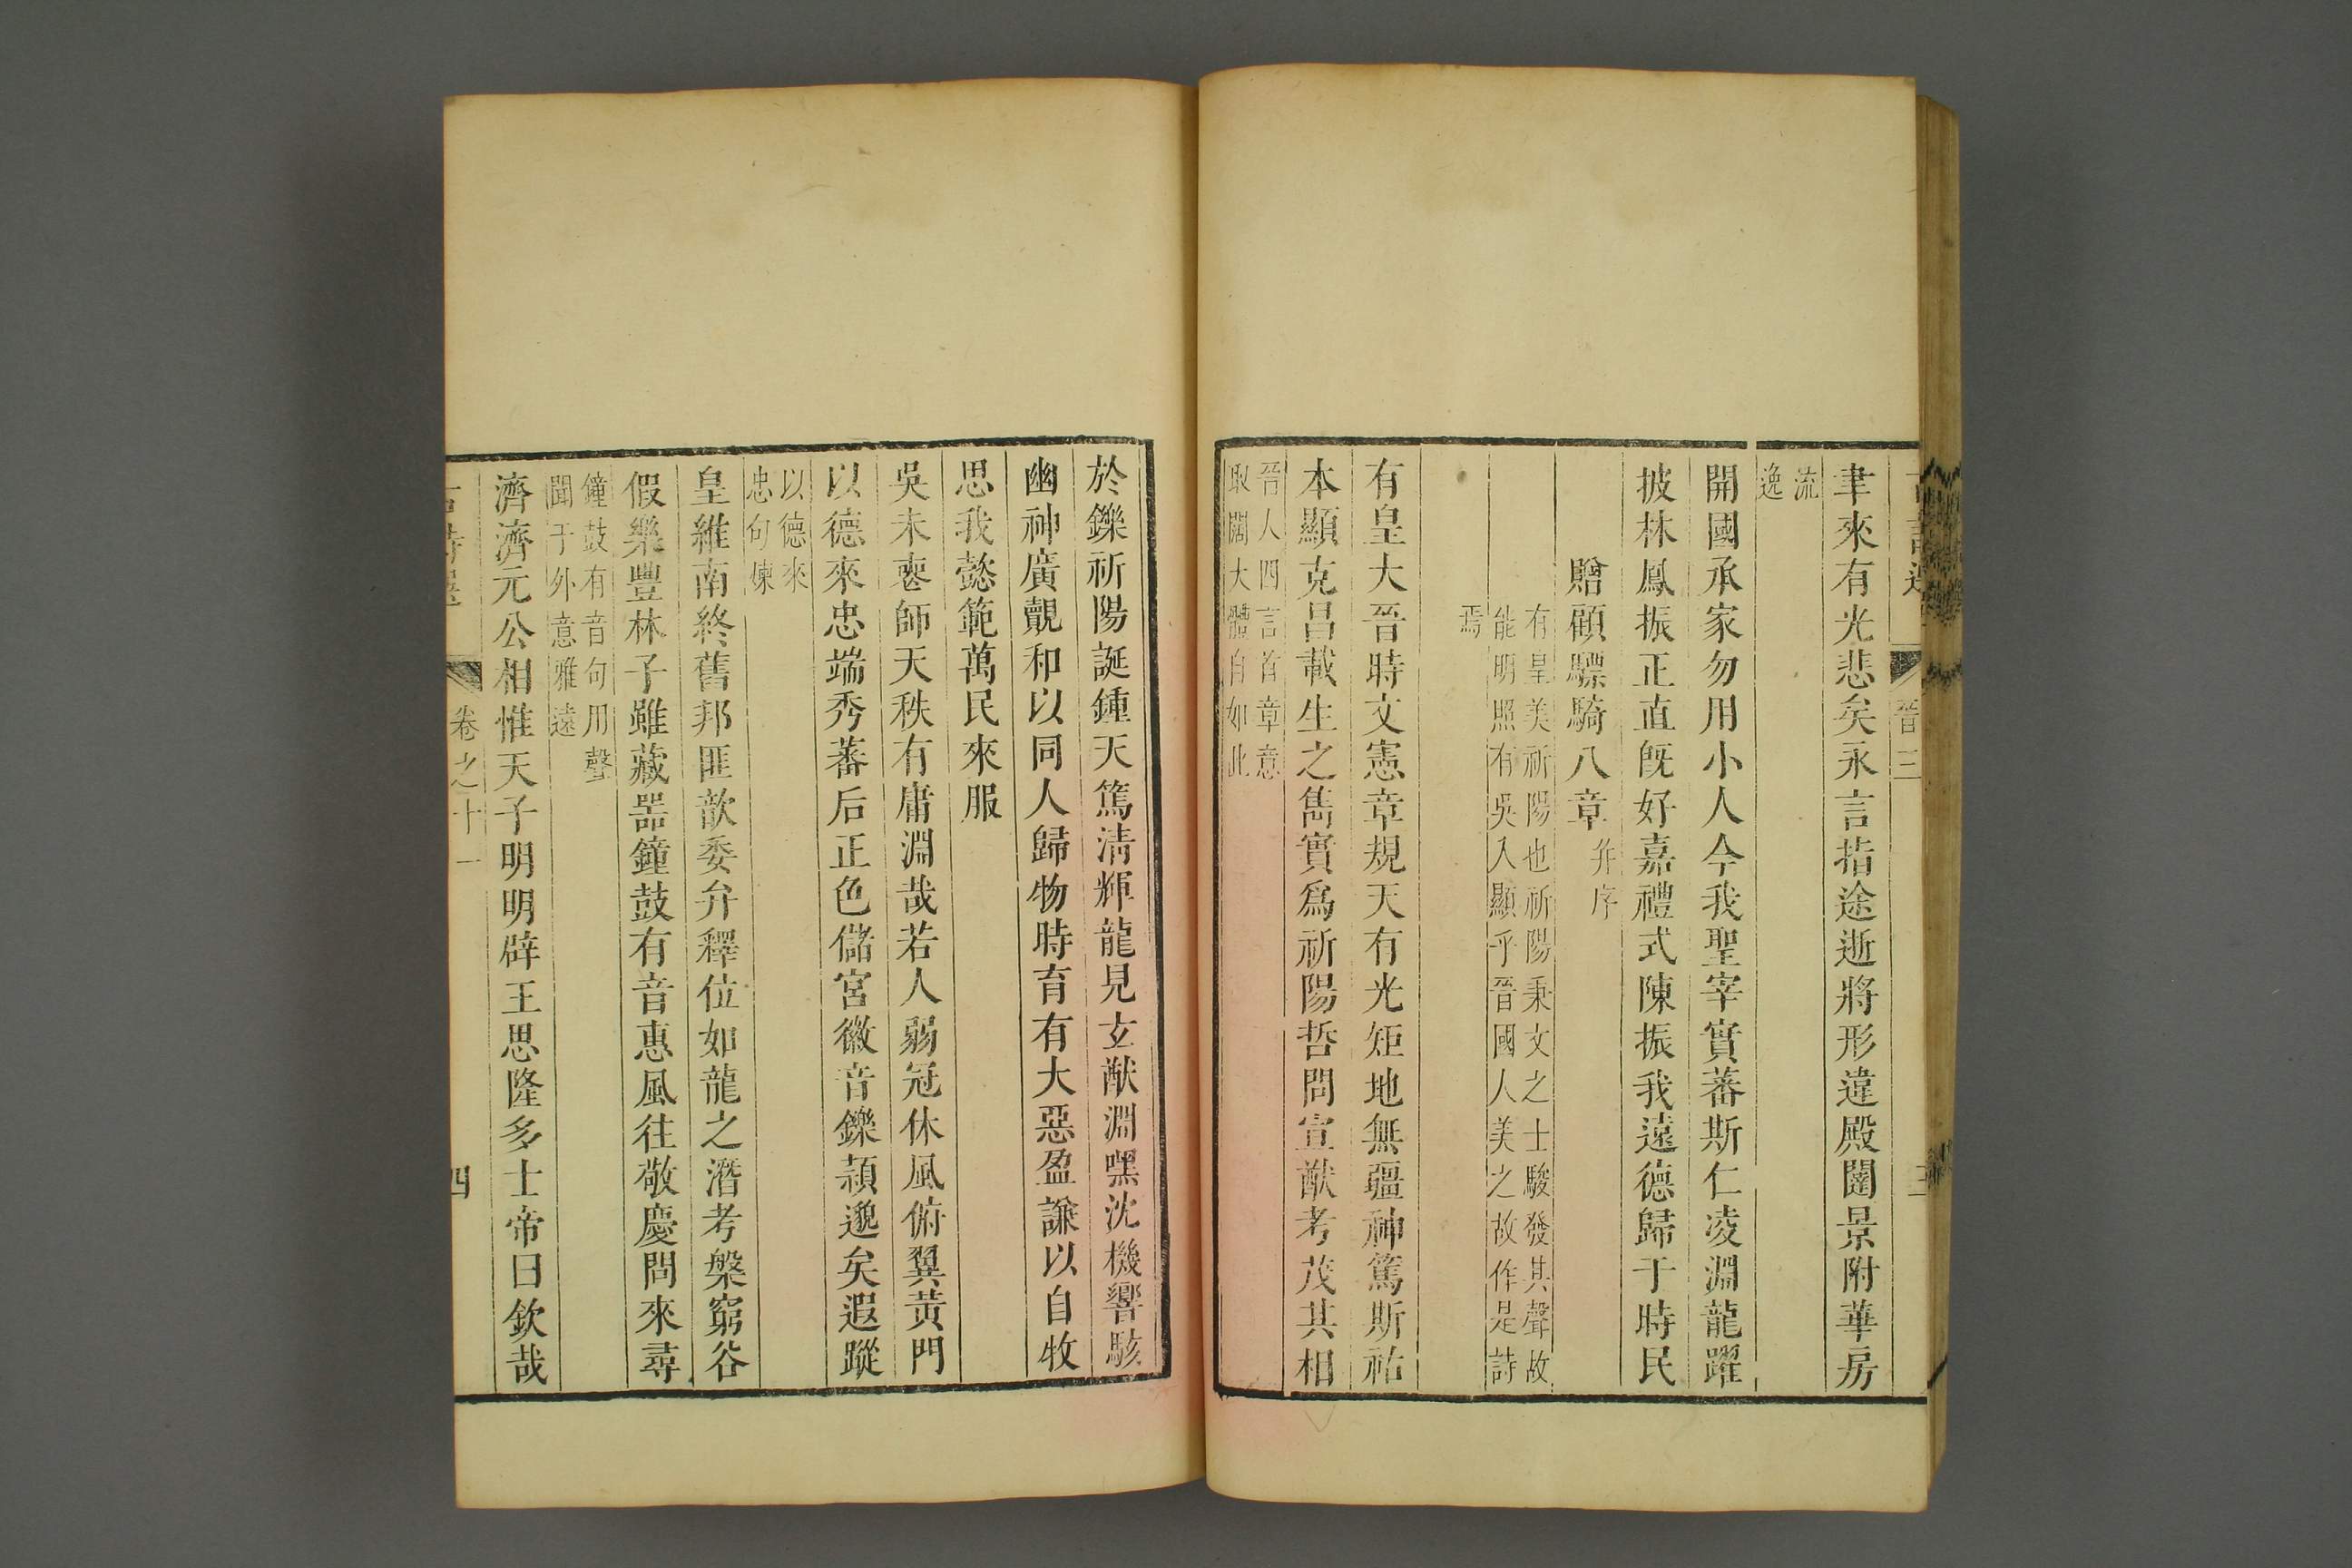 晉三
聿來有光悲矣永言指途逝將形違殿闥景附華房
流
逸
開國承家勿用小人今我聖宰實蕃斯仁凌淵龍躍
披林鳳振正直旣好嘉禮式陳振我遠德歸于時民
贈顧驃騎八章并序
有皇美祈陽也祈陽秉文之士駿發其聲故
能明照有吳入顯乎晉國人美之故作是詩
焉
有皇大晉時文憲章規天有光矩地無疆神篤斯祐
本顯克昌載生之雋實爲祈陽哲問宣猷考茂其相
晉人四言首章意
取闊大體自如此
於鑠祈陽誕鍾天篤清輝龍見玄猷淵嘿沈機響駭
幽神廣覿和以同人歸物時育有大惡盈謙以自牧
思我懿範萬民來服
吳未喪師天秩有庸淵哉若人弱冠休風俯翼黃門
以德來忠端秀蕃后正色儲宮徽音鑠穎邈矣遐蹤
以德來
忠句煉
皇維南終舊邦匪歆委弁釋位如龍之潛考槃窮谷
假樂豐林子雖藏噐鐘鼓有音惠風往敬慶問來尋
鐘鼓有音句用聲
聞于外意雅遠
濟濟元公相惟天子明明辟王思隆多士帝曰欽哉
卷之十一
四